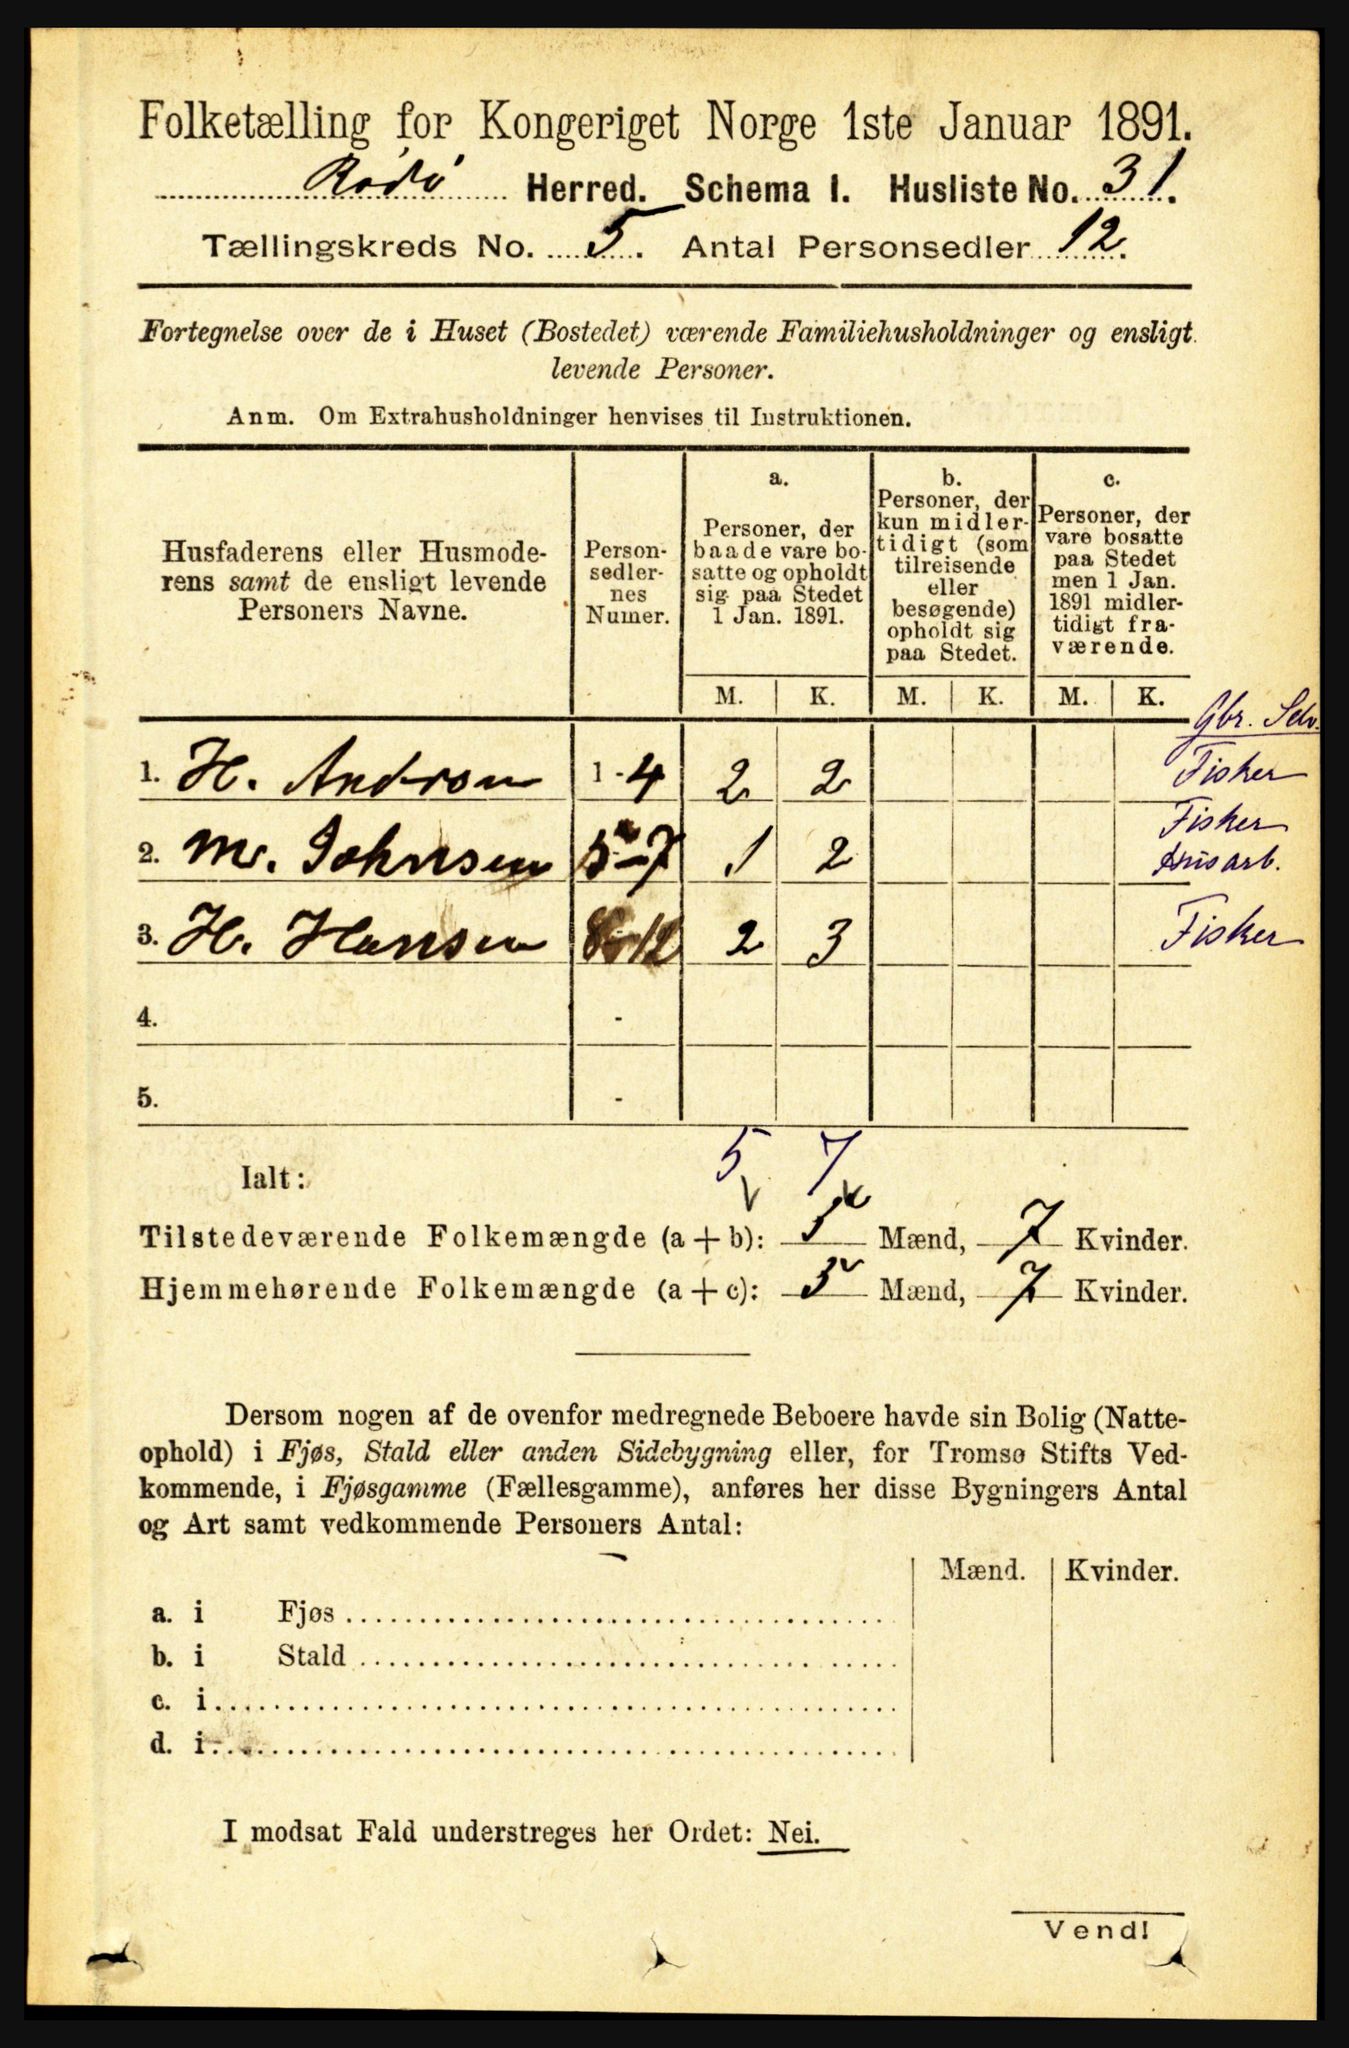 Folketælling for Kongeriget Norge 1ste Januar 1891.
Rødø Herred. Schema I. Husliste No. 31.
Tællingskreds No. 5. Antal Personsedler 12.
Fortegnelse over de i Huset (Bostedet) værende Familiehusholdninger og ensligt
levende Personer.
Anm. Om Extrahusholdninger henvises til Instruktionen.
Husfaderens eller Husmode-
rens samt de ensligt levende
Personers Navne.
Person-
sedler-
nes
Numer.
a.
Personer, der
baade vare bo-
satte og opholdt
sig paa Stedet
1 Jan. 1891.
b.
Personer, der
kun midler-
tidigt (som
tilreisende
eller
besøgende)
opholdt sig
paa Stedet.
c.
Personer, der
vare bosatte
paa Stedet
men 1 Jan.
1891 midler-
tidigt fra-
værende.
M. K. M. K. M. K.
Gbr. Selv.
1. H. Andersen 1-4 2 2 Fisker
Fisker
2. M. Johnsen 5-7 1 2 Husarb.
3. H. Hansen 8-12 2 3 Fisker
4. -
5. -
Ialt: 5 7
Tilstedeværende Folkemængde (a + b): 5 Mænd, 7 Kvinder.
Hjemmehørende Folkemængde (a + c): 5 Mænd, 7 Kvinder.
Dersom nogen af de ovenfor medregnede Beboere havde sin Bolig (Natte-
ophold) i Fjøs, Stald eller anden Sidebygning eller, for Tromsø Stifts Ved-
kommende, i Fjøsgamme (Fællesgamme), anføres her disse Bygningers Antal
og Art samt vedkommende Personers Antal:
Mænd. Kvinder.
a. i Fjøs
b. i Stald
c. i
d. i
I modsat Fald understreges her Ordet: Nei.
Vend!